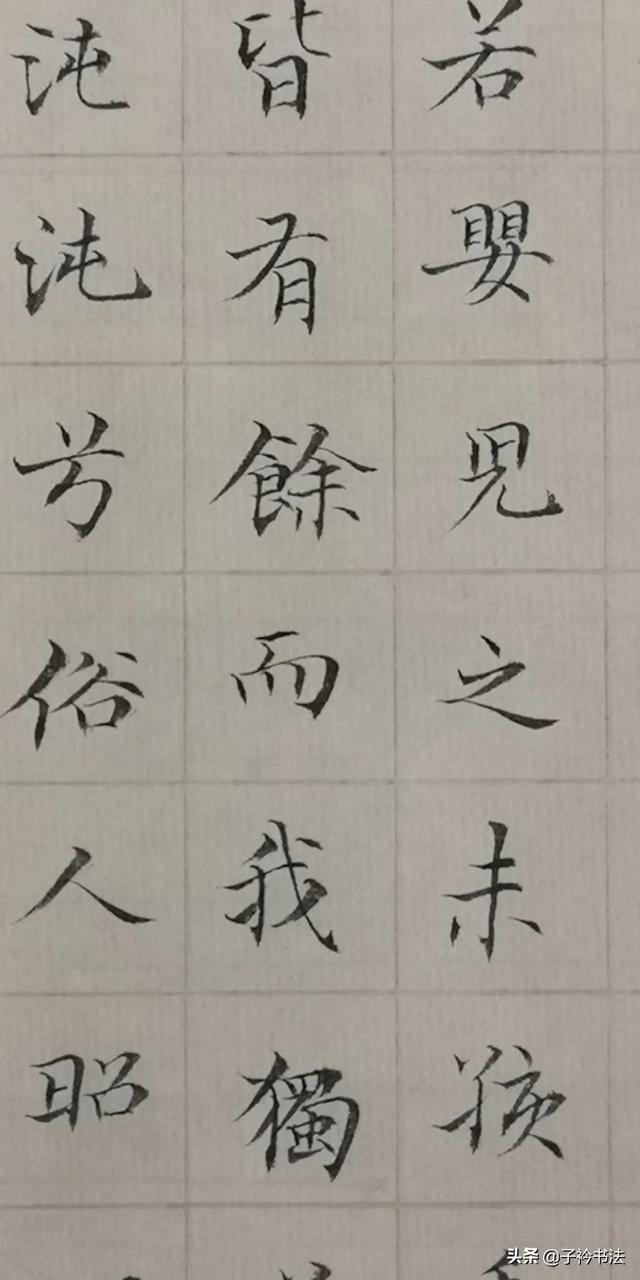 若嬰兒之未孩
皆有餘而我獨
沌沌兮俗人昭
头条 @子衿书法